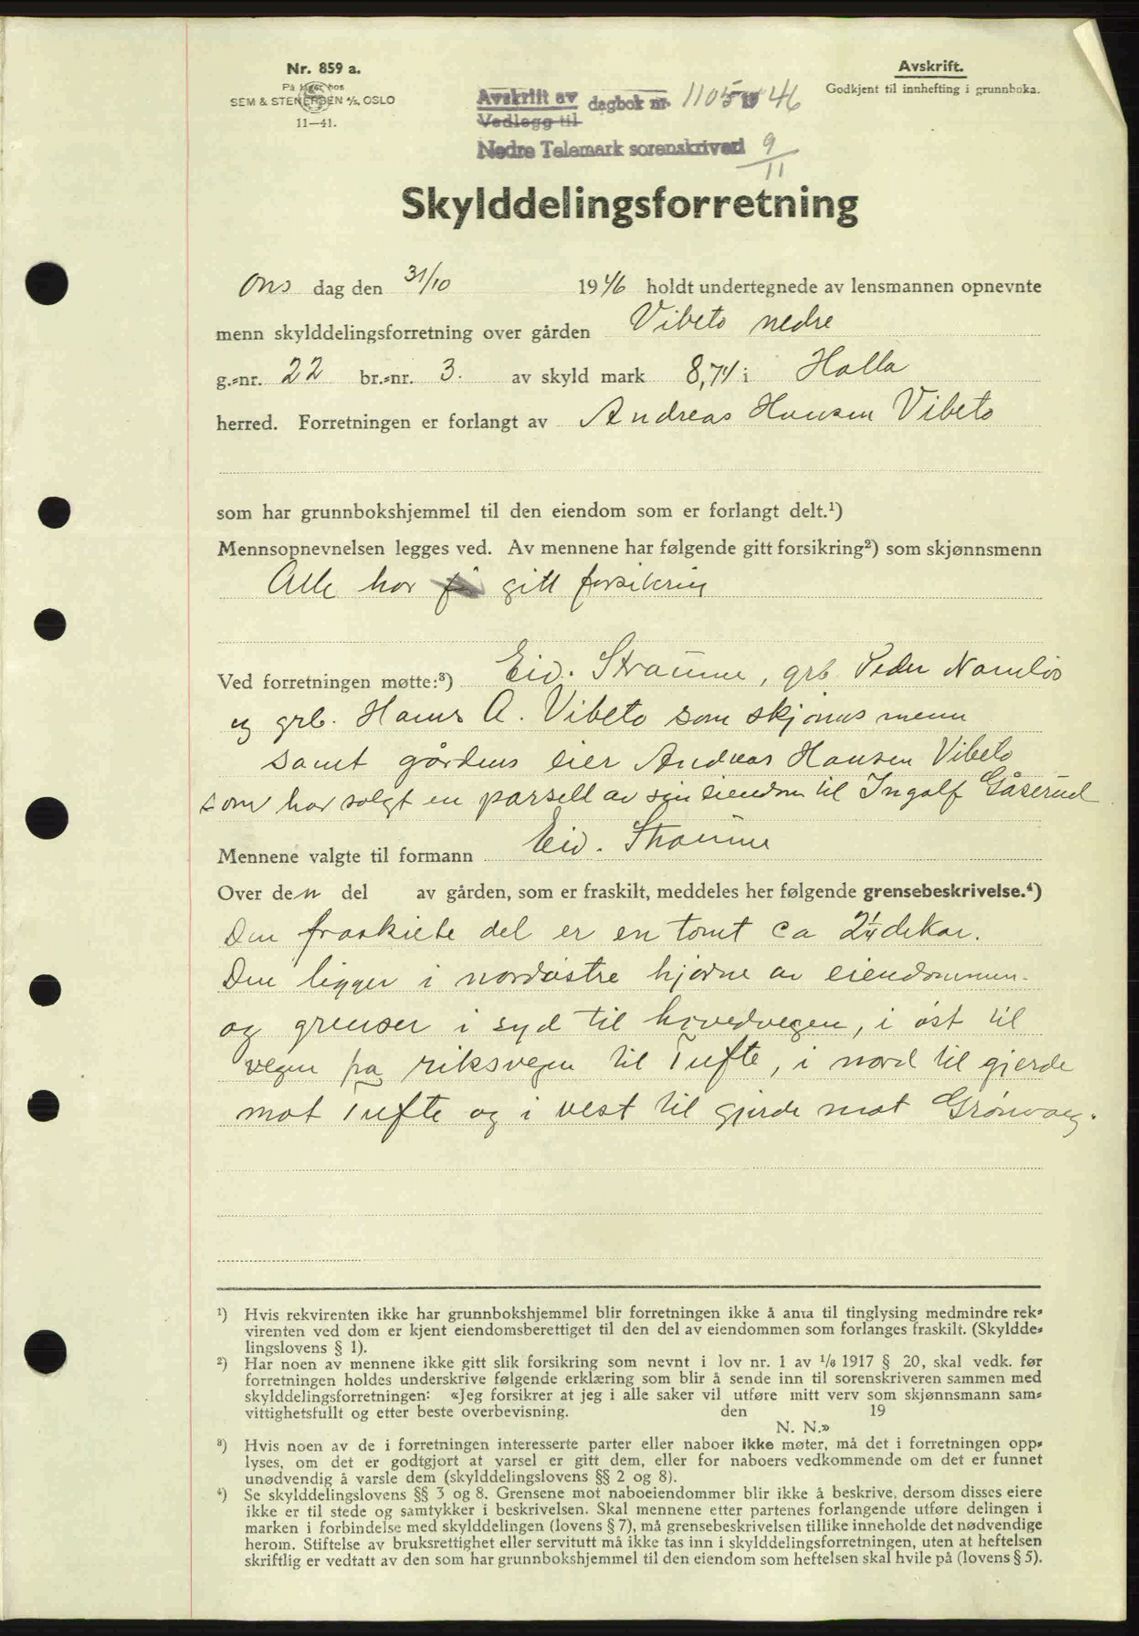 Nr. 859 a.
På lager hos
SEM & STENERSEN A/S, OSLO
11—41.
Avskrift av dagbok nr. 1105 1946
Vedlegg til
Nedre Telemark sorenskriveri 9/11
Avskrift.
Godkjent til innhefting i grunnboka.
Skylddelingsforretning
Ons dag den 31/10 1946 holdt undertegnede av lensmannen opnevnte
menn skylddelingsforretning over gården Vibeto nedre
g.=nr. 22 br.=nr. 3. av skyld mark 8,74 i Holla
herred. Forretningen er forlangt av Andreas Hansen Vibeto
som har grunnbokshjemmel til den eiendom som er forlangt delt.¹)
Mennsopnevnelsen legges ved. Av mennene har følgende gitt forsikring²) som skjønnsmenn
Alle har gitt forsikring
Ved forretningen møtte:³) Eiv. Straume, grb. Peder Namløs
og grb. Hans A. Vibeto som skjønnsmenn
samt gårdens eier Andreas Hansen Vibeto
som har solgt en parsell av sin eiendom til Ingolf Gåserud
Mennene valgte til formann Eiv. Straume
Over den del av gården, som er fraskilt, meddeles her følgende grensebeskrivelse.⁴)
Den fraskilte del er en tomt ca 2 1/4 dekar.
Den ligger i nordøstre hjørne av eiendommen
og grenser i syd til hovedvegen, i øst til
vegen fra riksvegen til Tufte, i nord til gjerde
mot Tufte og i vest til gjerde mot Grønvang.
¹) Hvis rekvirenten ikke har grunnbokshjemmel blir forretningen ikke å anta til tinglysing medmindre rek=
virenten ved dom er kjent eiendomsberettiget til den del av eiendommen som forlanges fraskilt. (Skyldde=
lingslovens § 1).
²) Har noen av mennene ikke gitt slik forsikring som nevnt i lov nr. 1 av 1/6 1917 § 20, skal vedk. før
forretningen holdes underskrive følgende erklæring som blir å sende inn til sorenskriveren sammen med
skylddelingsforretningen: «Jeg forsikrer at jeg i alle saker vil utføre mitt verv som skjønnsmann sam=
vittighetsfullt og etter beste overbevisning. den 19
N. N.»
³) Hvis noen av de i forretningen interesserte parter eller naboer ikke møter, må det i forretningen opp=
lyses, om det er godtgjort at varsel er gitt dem, eller for naboers vedkommende om det er funnet
unødvendig å varsle dem (skylddelingslovens §§ 2 og 8).
⁴) Se skylddelingslovens §§ 3 og 8. Grensene mot naboeiendommer blir ikke å beskrive, dersom disses eiere
ikke er til stede og samtykker i beskrivelsen. Skal mennene etter partenes forlangende utføre delingen i
marken i forbindelse med skylddelingen (lovens § 7), må grensebeskrivelsen tillike inneholde det nødvendige
herom. Stiftelse av bruksrettighet eller servitutt må ikke tas inn i skylddelingsforretningen, uten at heftelsen
skriftlig er vedtatt av den som har grunnbokshjemmel til den eiendom som heftelsen skal hvile på (lovens § 5).